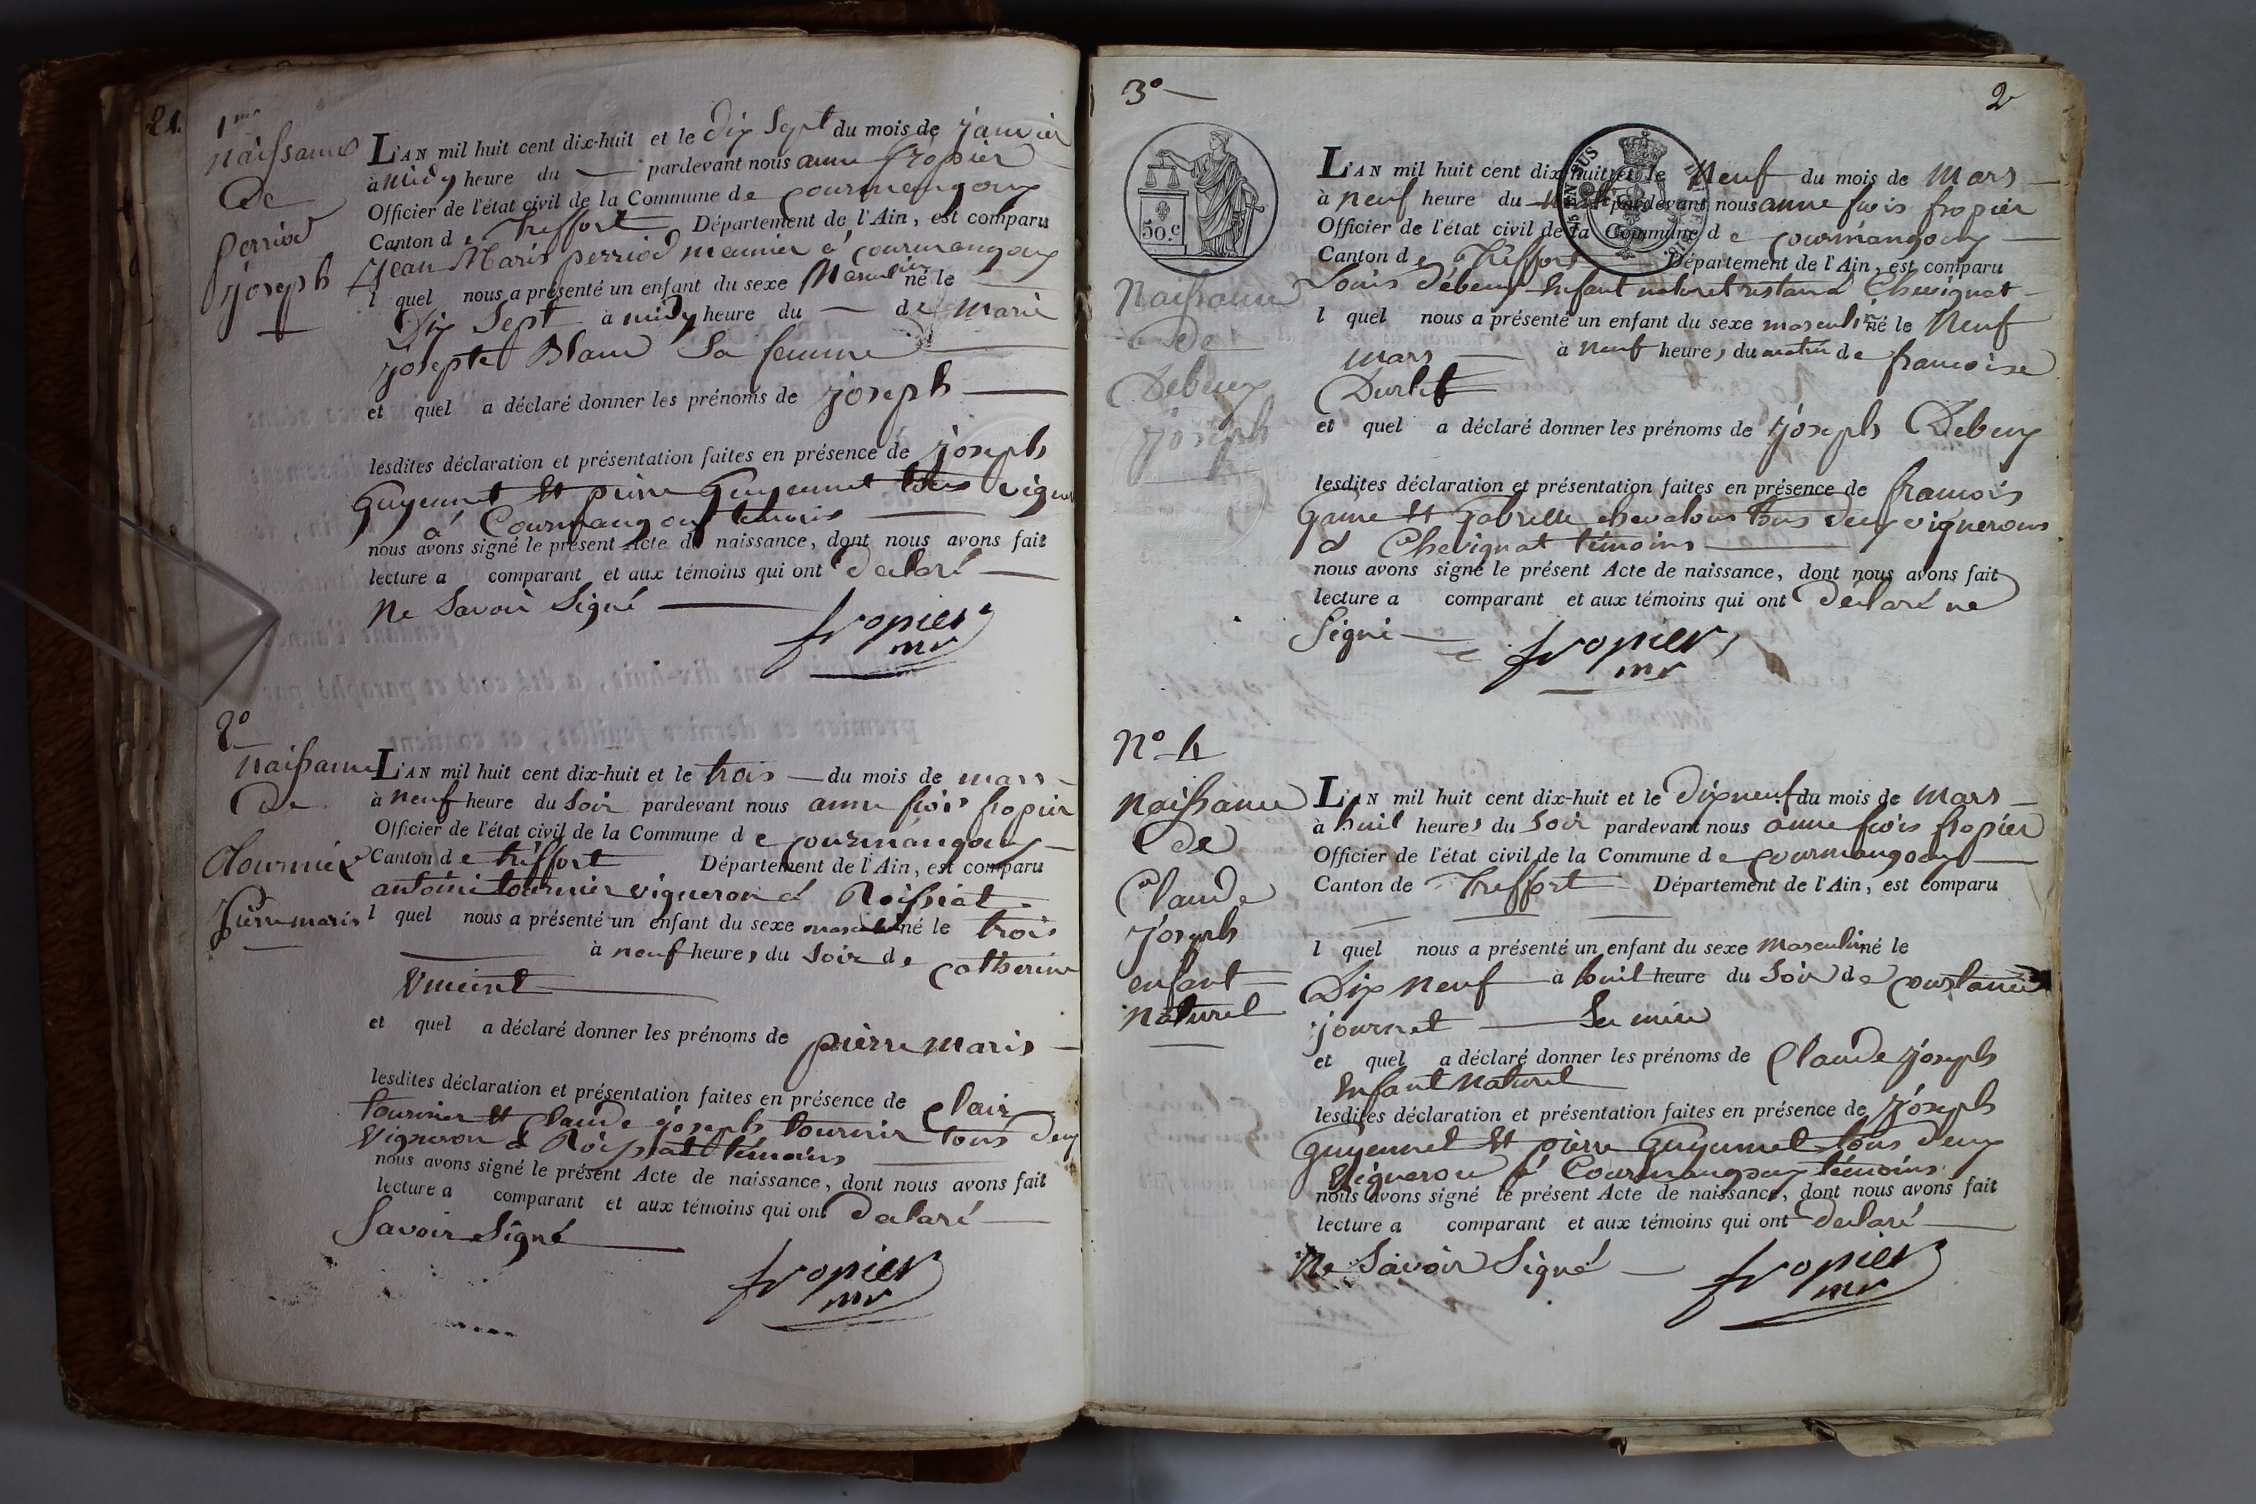 21.
1re
naissance
de
perriod
joseph
L'AN mil huit cent dix-huit et le Dix Sept du mois de janvier
à midy heure du — pardevant nous anne fropier
Officier de l'état civil de la Commune de Courmangoux
Canton de Treffort Département de l'Ain, est comparu
Jean Marie perriod meunier a Courmangoux
l quel nous a présenté un enfant du sexe Masculin né le
Dix Sept à midy heure du — de Marie
josepte Blanc Sa femme
et quel a déclaré donner les prénoms de joseph
lesdites déclaration et présentation faites en présence de joseph
Guyennet et pierre Guyennet tous vigneron
a Courmangoux temoins
nous avons signé le présent Acte de naissance, dont nous avons fait
lecture a comparant et aux témoins qui ont declaré
Ne Savoir Signé
fropier
mr
2°
naissance
de
tournier
pierre marie
L'AN mil huit cent dix-huit et le trois du mois de mars
à neuf heure du Soir pardevant nous anne fçois fropier
Officier de l'état civil de la Commune de Courmangoux
Canton de treffort Département de l'Ain, est comparu
antoine tournier vigneron a Roissiat
l quel nous a présenté un enfant du sexe masculin né le trois
à neuf heures du Soir de Catherine
Vincent
et quel a déclaré donner les prénoms de pierre marie
lesdites déclaration et présentation faites en présence de Clair
tournier et Claude joseph tournier tous deux
Vigneron a Roissiat témoins
nous avons signé le présent Acte de naissance, dont nous avons fait
lecture a comparant et aux témoins qui ont declaré
Savoir Signé
fropier
mr
3°
2
50.c
Naissance
de
Debeuy
joseph
L'AN mil huit cent dix-huit et le Neuf du mois de Mars
à neuf heure du matin pardevant nous anne fçois fropier
Officier de l'état civil de la Commune de Courmangoux
Canton de Treffort Département de l'Ain, est comparu
Louis debeuy Enfant naturel restant a Chevignat
l quel nous a présenté un enfant du sexe masculin né le Neuf
mars à neuf heures du matin de francoise
Durlet
et quel a déclaré donner les prénoms de joseph Debeuy
lesdites déclaration et présentation faites en présence de francois
Game et Gabrielle chevalons tous deux vignerons
a Chevignat témoins
nous avons signé le présent Acte de naissance, dont nous avons fait
lecture a comparant et aux témoins qui ont declaré ne
Signé
fropier
mr
N° 4
naissance
de
Claude
joseph
enfant
naturel
L'AN mil huit cent dix-huit et le Dix neuf du mois de Mars
à huit heures du Soir pardevant nous anne fçois fropier
Officier de l'état civil de la Commune de Courmangoux
Canton de Treffort Département de l'Ain, est comparu
l quel nous a présenté un enfant du sexe Masculin né le
Dix Neuf à huit heure du Soir de Constance
journet Sa mère
et quel a déclaré donner les prénoms de Claude joseph
Enfant Naturel
lesdites déclaration et présentation faites en présence de joseph
Guyennet et pierre Guyennet tous deux
Vigneron a Courmangoux témoins
nous avons signé le présent Acte de naissance, dont nous avons fait
lecture a comparant et aux témoins qui ont declaré
Ne Savoir Signé
fropier
mr